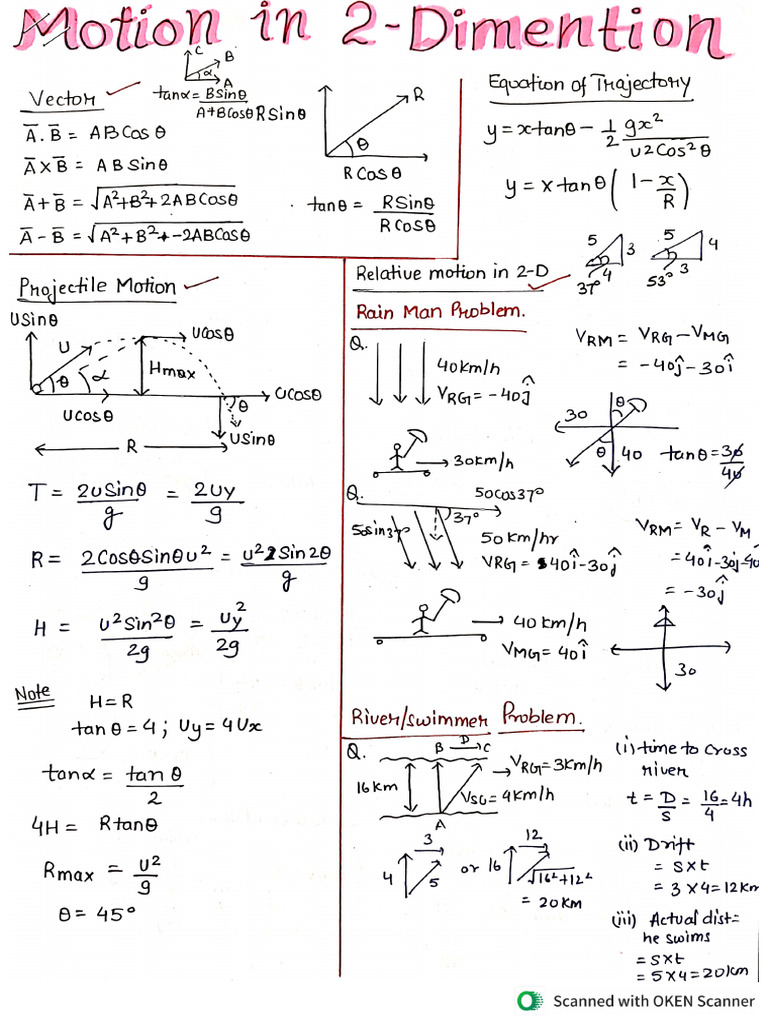 Motion in 2-Dimention
Vector
C
B
α
A
tanα = BSinθ / A+BCosθ
A̅.B̅ = ABCosθ
A̅×B̅ = ABSinθ
A̅+B̅ = √A²+B²+2ABCosθ
A̅-B̅ = √A²+B²+-2ABCosθ
RSinθ
R
θ
RCosθ
tanθ = RSinθ / RCosθ
Equation of Trajectory
y = xtanθ - 1/2 gx² / U2Cos²θ
y = xtanθ ( 1 - x/R )
5 3 4 37°
5 4 3 53°
Projectile Motion
USinθ
U
UCosθ
θ
α
Hmax
UCosθ
UCosθ
θ
USinθ
R
T = 2USinθ / g = 2Uy / g
R = 2CosθSinθU² / g = U²2Sin2θ / g
H = U²Sin²θ / 2g = Uy² / 2g
Note
H=R
tanθ = 4 ; Uy = 4Ux
tanα = tanθ / 2
4H = Rtanθ
Rmax = U² / g
θ = 45°
Relative motion in 2-D
Rain Man Problem.
Q.
40km/h
VRG = -40ĵ
30km/h
VRM = VRG - VMG
= -40ĵ - 30î
30
θ
θ
40
tanθ = 30 / 40
Q.
50cos37°
50sin37°
37°
50 km/hr
VRG = 40î-30ĵ
40 km/h
VMG = 40î
VRM = VR - VM
= 40î-30ĵ-40
= -30ĵ
30
River/swimmer Problem.
Q.
B D C
16km
VRG = 3km/h
VSG = 4km/h
A
3
4
5
or
12
16
√16²+12²
= 20KM
(i) time to cross
river
t = D/S = 16/4 = 4h
(ii) Drift
= S×t
= 3×4=12km
(iii) Actual dist=
he swims
= S×t
= 5×4=20km
Scanned with OKEN Scanner